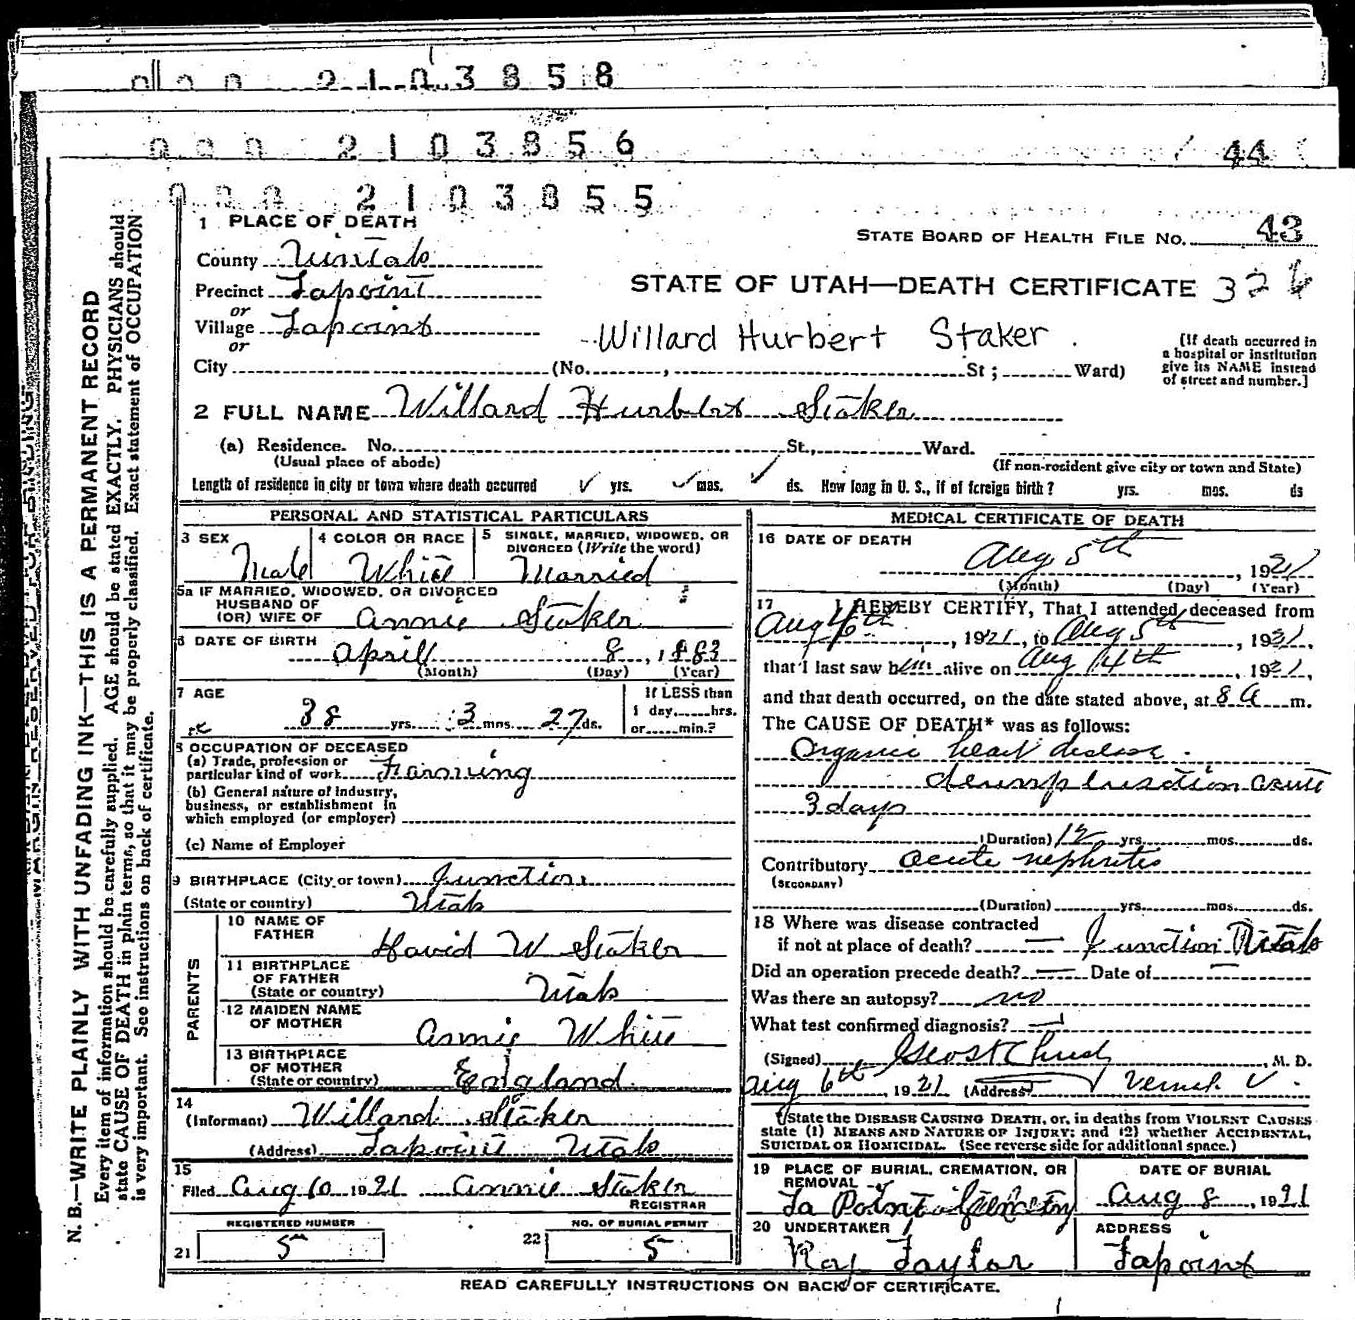 2103858
000 2103856
44
000 2103855
1 PLACE OF DEATH
STATE BOARD OF HEALTH FILE No. 43
County Uintah
Precinct Lapoint
or
Village Lapoint
or
STATE OF UTAH—DEATH CERTIFICATE 326
Willard Hurbert Staker
City (No. , St ; Ward)
[If death occurred in a hospital or institution give its NAME instead of street and number.]
2 FULL NAME Willard Hurbert Staker
(a) Residence. No. St., Ward.
(Usual place of abode) (If non-resident give city or town and State)
Length of residence in city or town where death occurred ✓ yrs. ✓ mos. ✓ ds. How long in U. S., if of foreign birth? yrs. mos. ds
PERSONAL AND STATISTICAL PARTICULARS
3 SEX Male
4 COLOR OR RACE White
5 SINGLE, MARRIED, WIDOWED, OR DIVORCED (Write the word) Married
5a IF MARRIED, WIDOWED, OR DIVORCED
HUSBAND OF
(OR) WIFE OF Annie Staker
6 DATE OF BIRTH April 8, 1883
(Month) (Day) (Year)
7 AGE 38 yrs. 3 mos. 27 ds.
If LESS than
1 day, hrs.
or min.?
8 OCCUPATION OF DECEASED
(a) Trade, profession or
particular kind of work Farming
(b) General nature of industry,
business, or establishment in
which employed (or employer)
(c) Name of Employer
9 BIRTHPLACE (City or town) Junction
(State or country) Utah
PARENTS
10 NAME OF FATHER David W Staker
11 BIRTHPLACE OF FATHER (State or country) Utah
12 MAIDEN NAME OF MOTHER Annie White
13 BIRTHPLACE OF MOTHER (State or country) England
14
(Informant) Willard Staker
(Address) Lapoint Utah
15
Filed Aug 10 1921 Annie Staker
REGISTRAR
REGISTERED NUMBER
21 5
NO. OF BURIAL PERMIT
22 5
MEDICAL CERTIFICATE OF DEATH
16 DATE OF DEATH Aug 5th, 1921
(Month) (Day) (Year)
17 I HEREBY CERTIFY, That I attended deceased from
Aug 4th, 1921, to Aug 5th, 1921,
that I last saw him alive on Aug 4th, 1921,
and that death occurred, on the date stated above, at 8 a m.
The CAUSE OF DEATH* was as follows:
Organic heart disease.
acute
3 days
(Duration) 12 yrs. mos. ds.
Contributory acute nephritis
(SECONDARY)
(Duration) yrs. mos. ds.
18 Where was disease contracted
if not at place of death? — Junction Utah
Did an operation precede death? — Date of —
Was there an autopsy? no
What test confirmed diagnosis? —
(Signed) M. D.
Aug 6th, 1921 (Address)
*State the DISEASE CAUSING DEATH, or, in deaths from VIOLENT CAUSES
state (1) MEANS AND NATURE OF INJURY; and (2) whether ACCIDENTAL,
SUICIDAL OR HOMICIDAL. (See reverse side for additional space.)
19 PLACE OF BURIAL, CREMATION, OR REMOVAL
La Point Cemetery
DATE OF BURIAL
Aug 8, 1921
20 UNDERTAKER
Roy Taylor
ADDRESS
Lapoint
READ CAREFULLY INSTRUCTIONS ON BACK OF CERTIFICATE.
MARGIN RESERVED FOR BINDING
N. B.—WRITE PLAINLY WITH UNFADING INK—THIS IS A PERMANENT RECORD
Every item of information should be carefully supplied. AGE should be stated EXACTLY. PHYSICIANS should
state CAUSE OF DEATH in plain terms, so that it may be properly classified. Exact statement of OCCUPATION
is very important. See instructions on back of certificate.